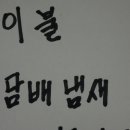 이불
담배냄새